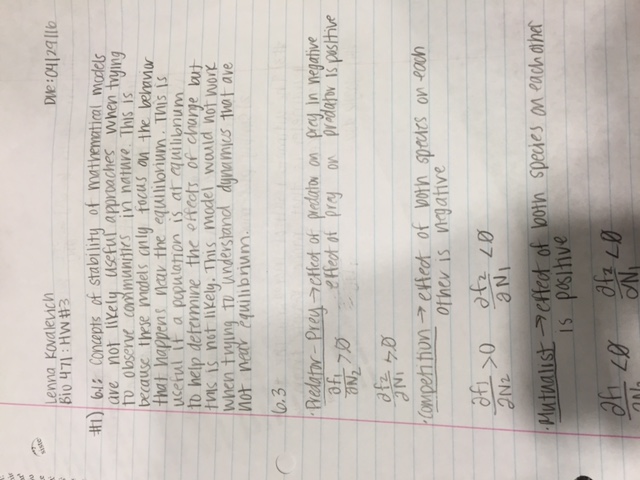 Lenna Kovalevich Due: 04/29/16
Bio 471: HW#3
#1) 6.1: Concepts of stability of mathematical models
are not likely useful approaches when trying
to observe communities in nature. This is
because these models only focus on the behavior
that happens near the equilibrium. This is
useful if a population is at equilibrium
to help determine the effects of change but
this is not likely. This model would not work
when trying to understand dynamics that are
not near equilibrium.
6.3
· Predator - Prey → effect of predator on prey in negative
effect of prey on predator is positive
∂f₁/∂N₂ > 0
∂f₂/∂N₁ > 0
· Competition → effect of both species on each
other is negative
∂f₁/∂N₂ > 0 ∂f₂/∂N₁ < 0
· Mutualist → effect of both species on each other
is positive
∂f₁/∂N₂ < 0 ∂f₂/∂N₁ < 0